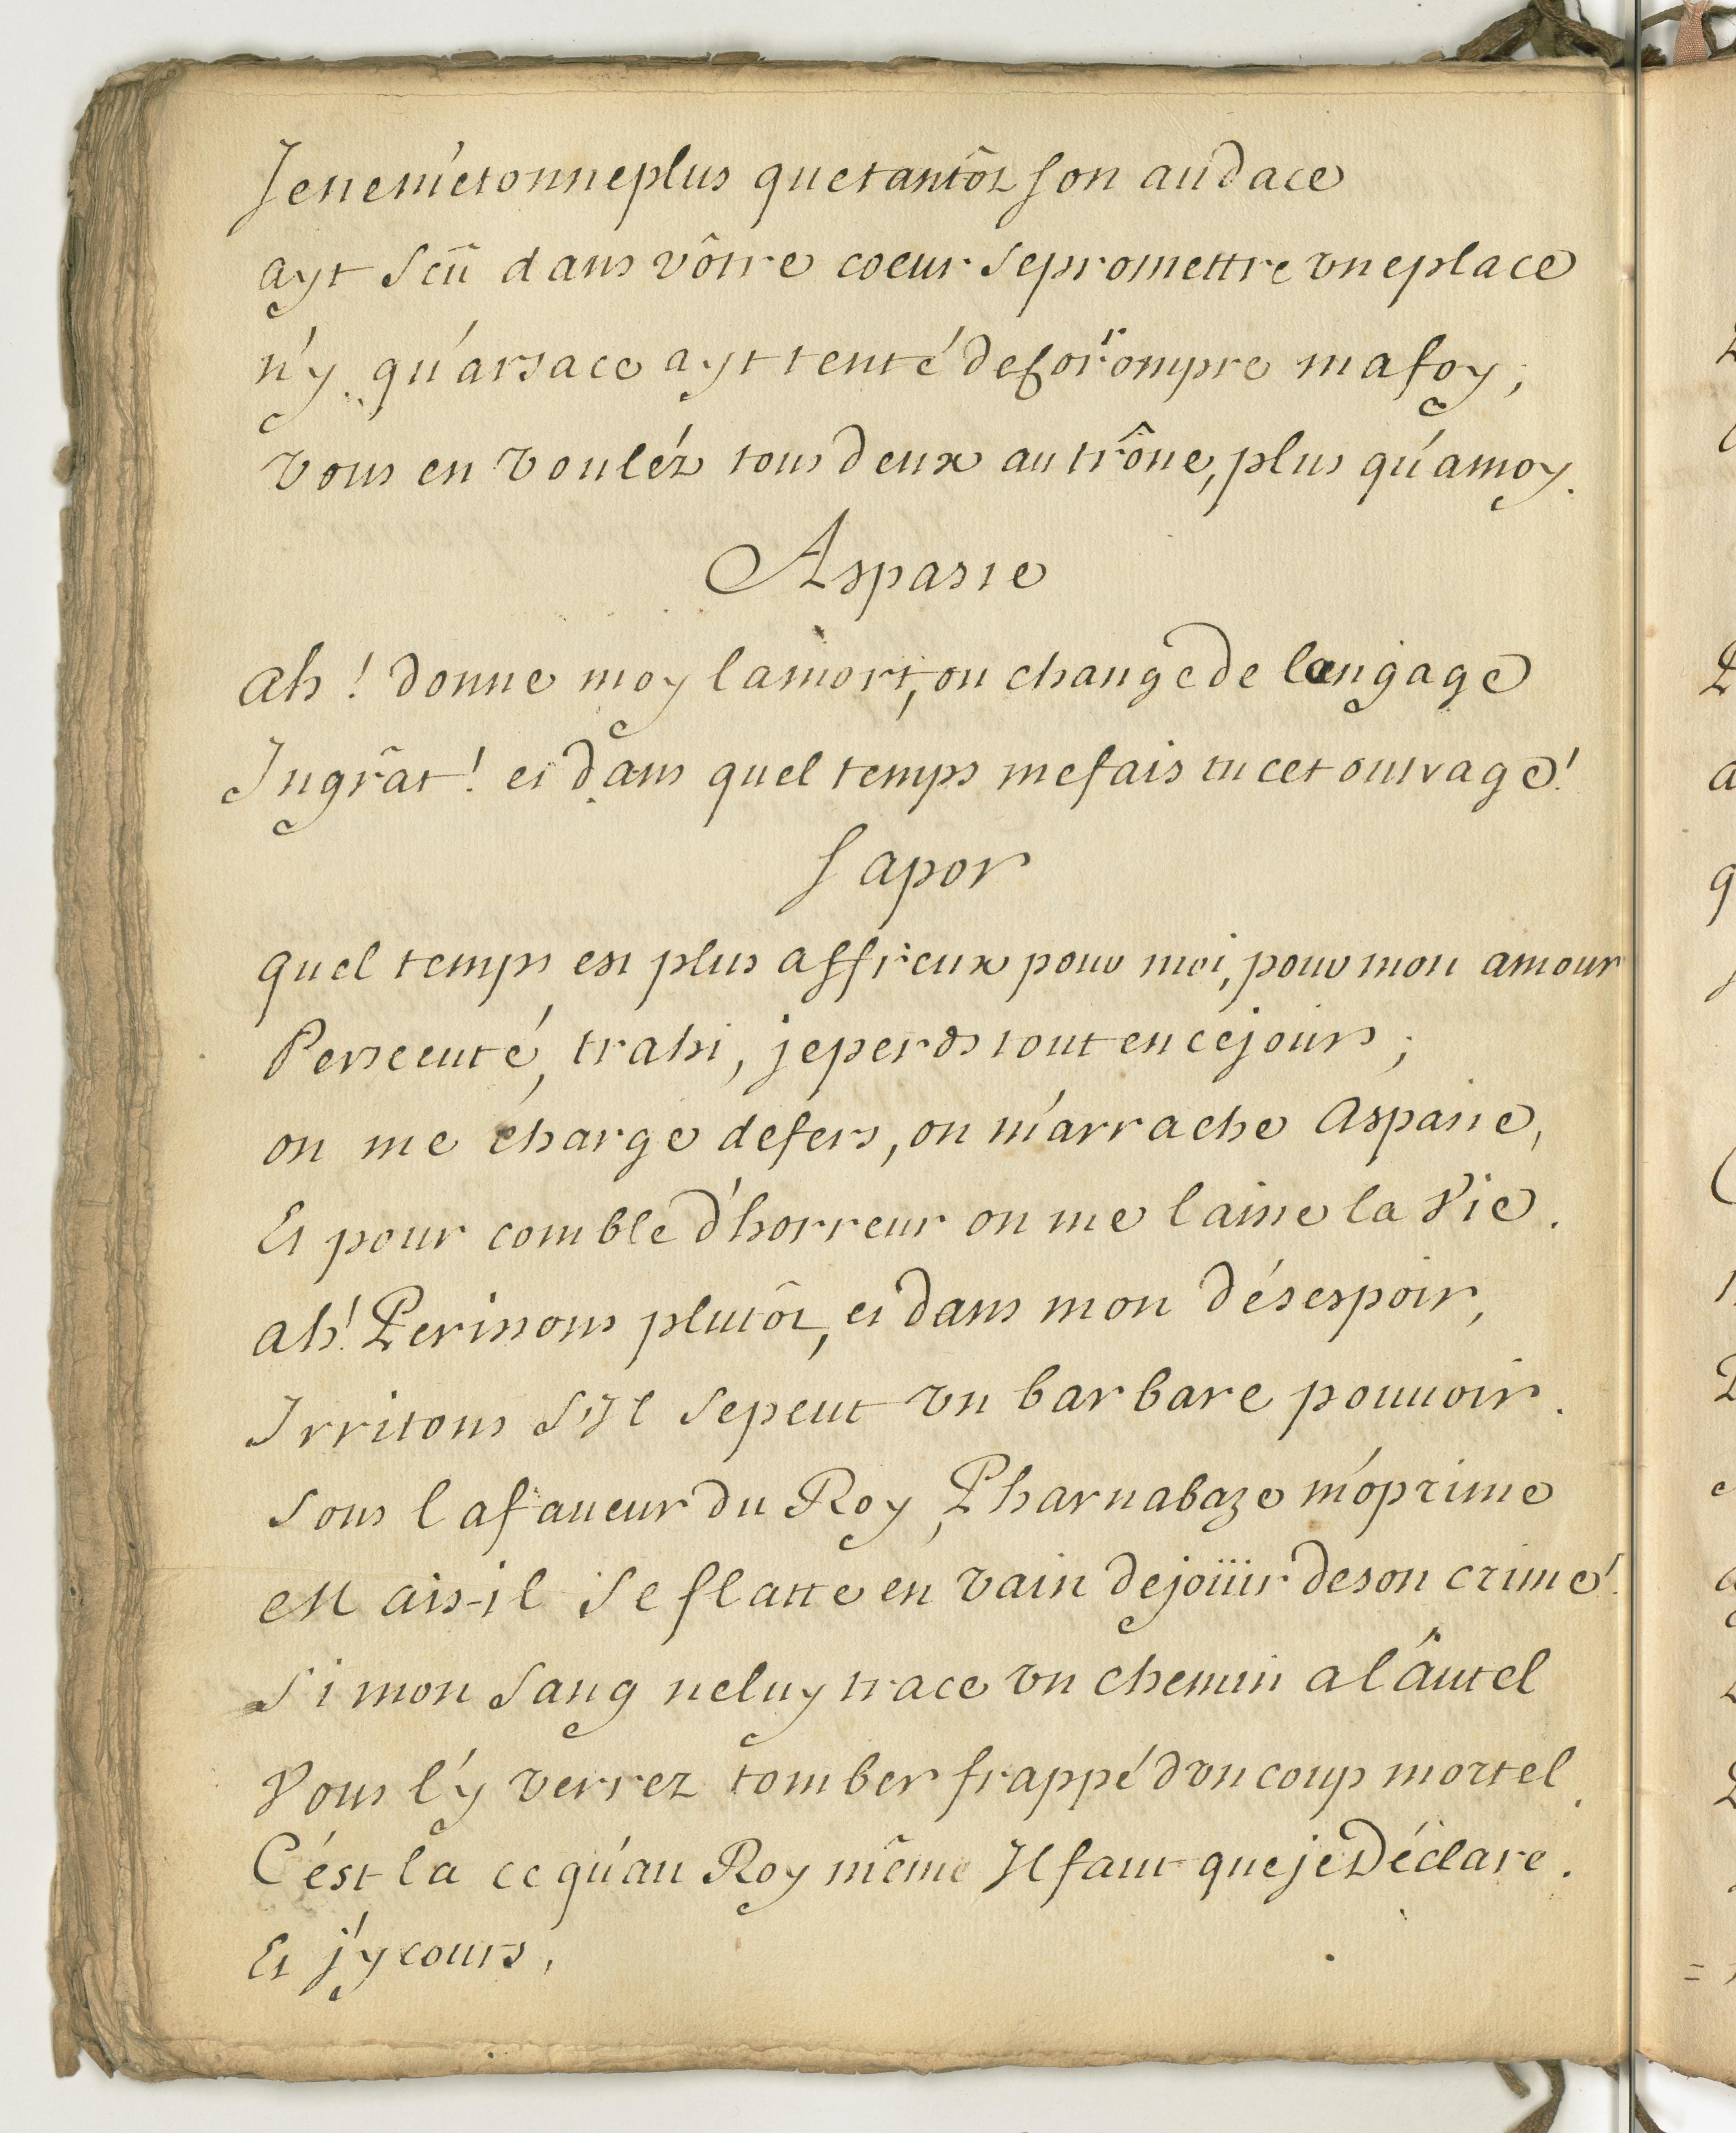 Je ne m'étonne plus que tantôt son audace
ayt sçû dans vôtre coeur se promettre vne place
n'y qu'arsace ayt tenté de corrompre ma foy;
vous en vouléz tous deux au trône, plus qu'a moy.
Aspasie
ah! donne moy la mort, ou change de langage
Ingrât! et dans quel temps me fais tu cet outrage!
Sapor
quel temps est plus affreux pour moi, pour mon amour
Persecuté, trahi, je perds tout en ce jours;
on me charge de fers, on m'arrache Aspasie,
Et pour comble d'horreur on me laisse la Vie.
ah! Perissons plutôt, et dans mon désespoir,
Irritons s'Il se peut vn barbare pouuoir.
sous la faueur du Roy, Pharnabaze m'oprime
Mais-il se flatte en vain de joüir de son crime!
si mon sang ne luy trace vn chemin a l'âutel
Vous l'y verrez tomber frappé d'vn coup mortel.
C'ést la ce qu'au Roy même Il faut que je Déclare.
Et j'y cours,